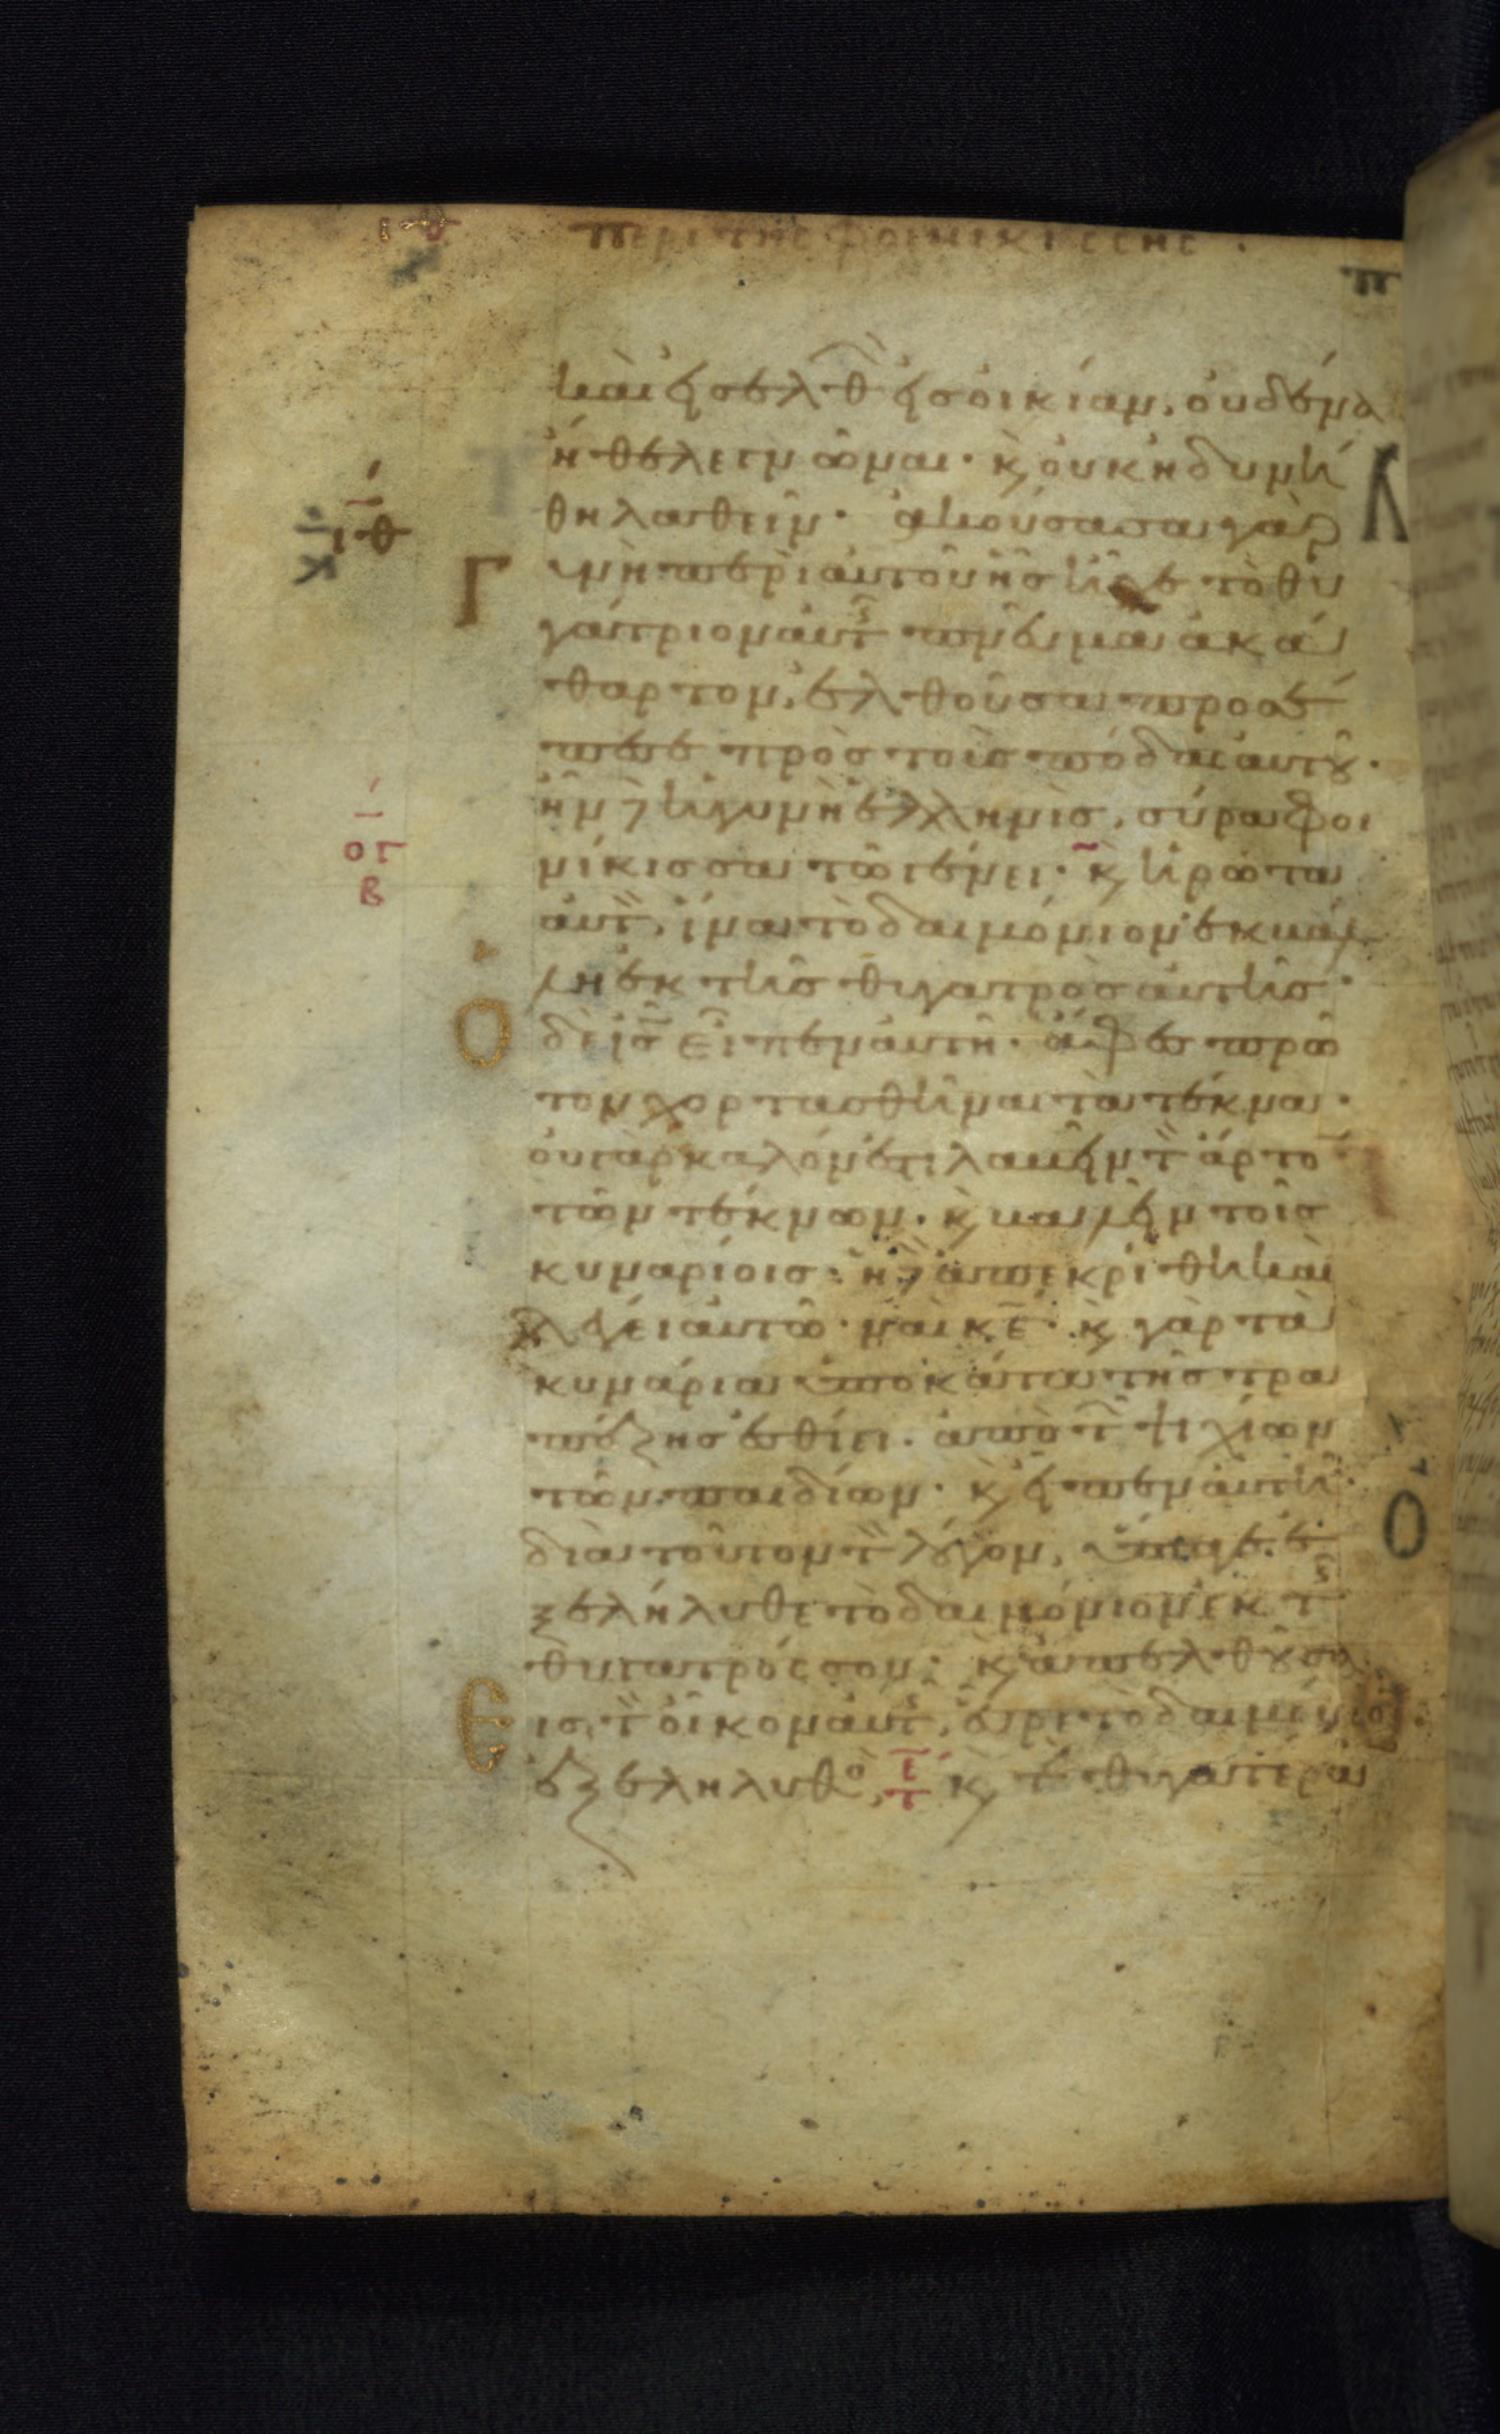 περι της φοινικισσης
και εισελθ εις οικίαν, ουδένα
ήθελε γνῶναι · κ ουκ ηδυνή
θη λαθεῖν · ακούσασα γὰρ
Γ υνὴ περὶ αυτοῦ ἧς εἶχε τὸ θυ
γάτριον αυτ πνεῦμα ακά
θαρτον, ελθοῦσα προσέ
πεσε πρὸς τοὺς πόδας αυτου ·
ἦν δ η γυνὴ ελληνὶς, σύρα φοι
νίκισσα τῶ γένει · κ ηρώτα
αυτ, ίνα τὸ δαιμόνιον εκβάλ
λη εκ τῆς θυγατρὸς αυτῆς ·
Ο δὲ ις εῖπεν αυτῆ · άφες πρῶ
τον χορτασθῆναι τὰ τέκνα ·
ου γάρ καλόν εστι λαβεῖν τ άρτο
τῶν τέκνων · κ βαλεῖν τοῖς
κυναρίοις · ἡ δ απεκρίθη και
λέγει αυτῶ · ναὶ κε · κ γὰρ τὰ
κυνάρια υποκάτω τῆς τρα
πέζης εσθίει · απὸ τ ψιχίων
τῶν παιδίων · κ εῖπεν αυτῆ ·
διὰ τοῦτον τ λόγον, ύπαγε · ε
ξελήλυθε τὸ δαιμόνιον εκ τ
θυγατρός σου · κ απελθοῦσα
Ε ις τ οῖκον αυτ, εῦρε τὸ δαιμόνιον
εξεληλυθὸ, κ τ θυγατέρα